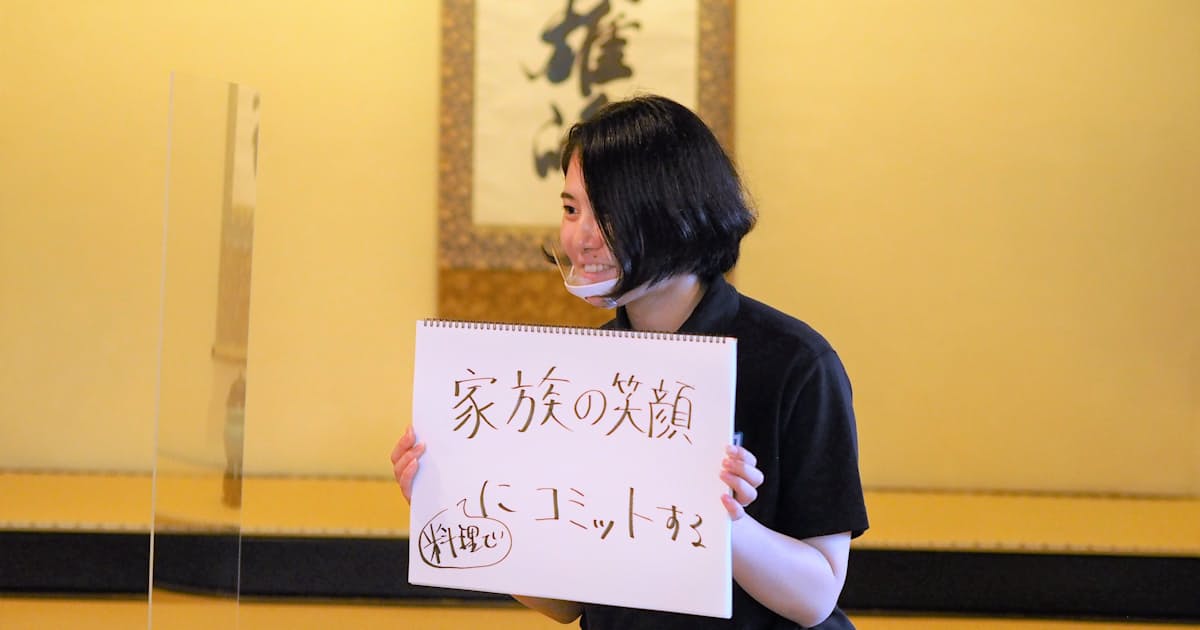 家族の笑顔
にコミットする
料理で